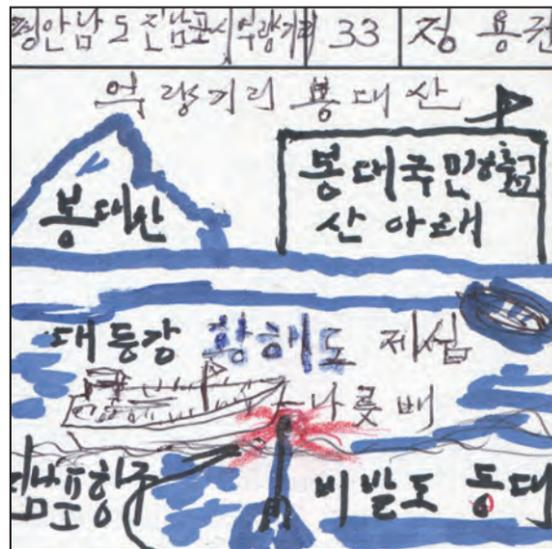 평안남도 진남포시 억량기리 33 정용권
억량기리 봉대산
봉대산
봉대국민학교
산 아래
대동강 황해도 제섬
나룻배
남포항구
비발도 등대